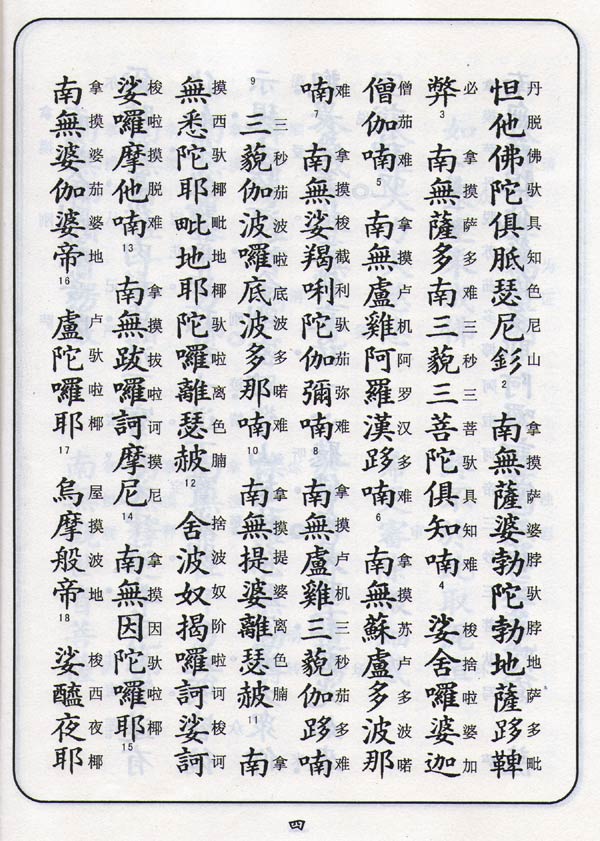 丹脱佛驮具知色尼山 拿摸萨婆脖驮脖地萨多毗
怛他佛陀俱胝瑟尼釤 2 南無薩婆勃陀勃地薩跢鞞
必 拿摸萨多难三秒三菩驮具知难 梭捨啦婆加
弊 3 南無薩多南三藐三菩陀俱知喃 4 娑舍囉婆迦
僧茄难 拿摸卢机阿罗汉多难 拿摸苏卢多波喏
僧伽喃 5 南無盧雞阿羅漢跢喃 6 南無蘇盧多波那
难 拿摸梭截利驮茄弥难 拿摸卢机三秒茄多难
喃 7 南無娑羯唎陀伽彌喃 8 南無盧雞三藐伽跢喃
三秒茄波啦底波多喏难 拿摸提婆离色腩 拿
9 三藐伽波囉底波多那喃 10 南無提婆離瑟赧 11 南
摸西驮椰毗地椰驮啦离色腩 捨波奴阶啦诃梭诃
無悉陀耶毗地耶陀囉離瑟赧 12 舍波奴揭囉訶娑訶
梭啦摸脱难 拿摸拔啦诃摸尼 拿摸因驮啦椰
娑囉摩他喃 13 南無跋囉訶摩尼 14 南無因陀囉耶 15
拿摸婆茄婆地 卢驮啦椰 屋摸波地 梭西夜椰
南無婆伽婆帝 16 盧陀囉耶 17 烏摩般帝 18 娑醯夜耶
四